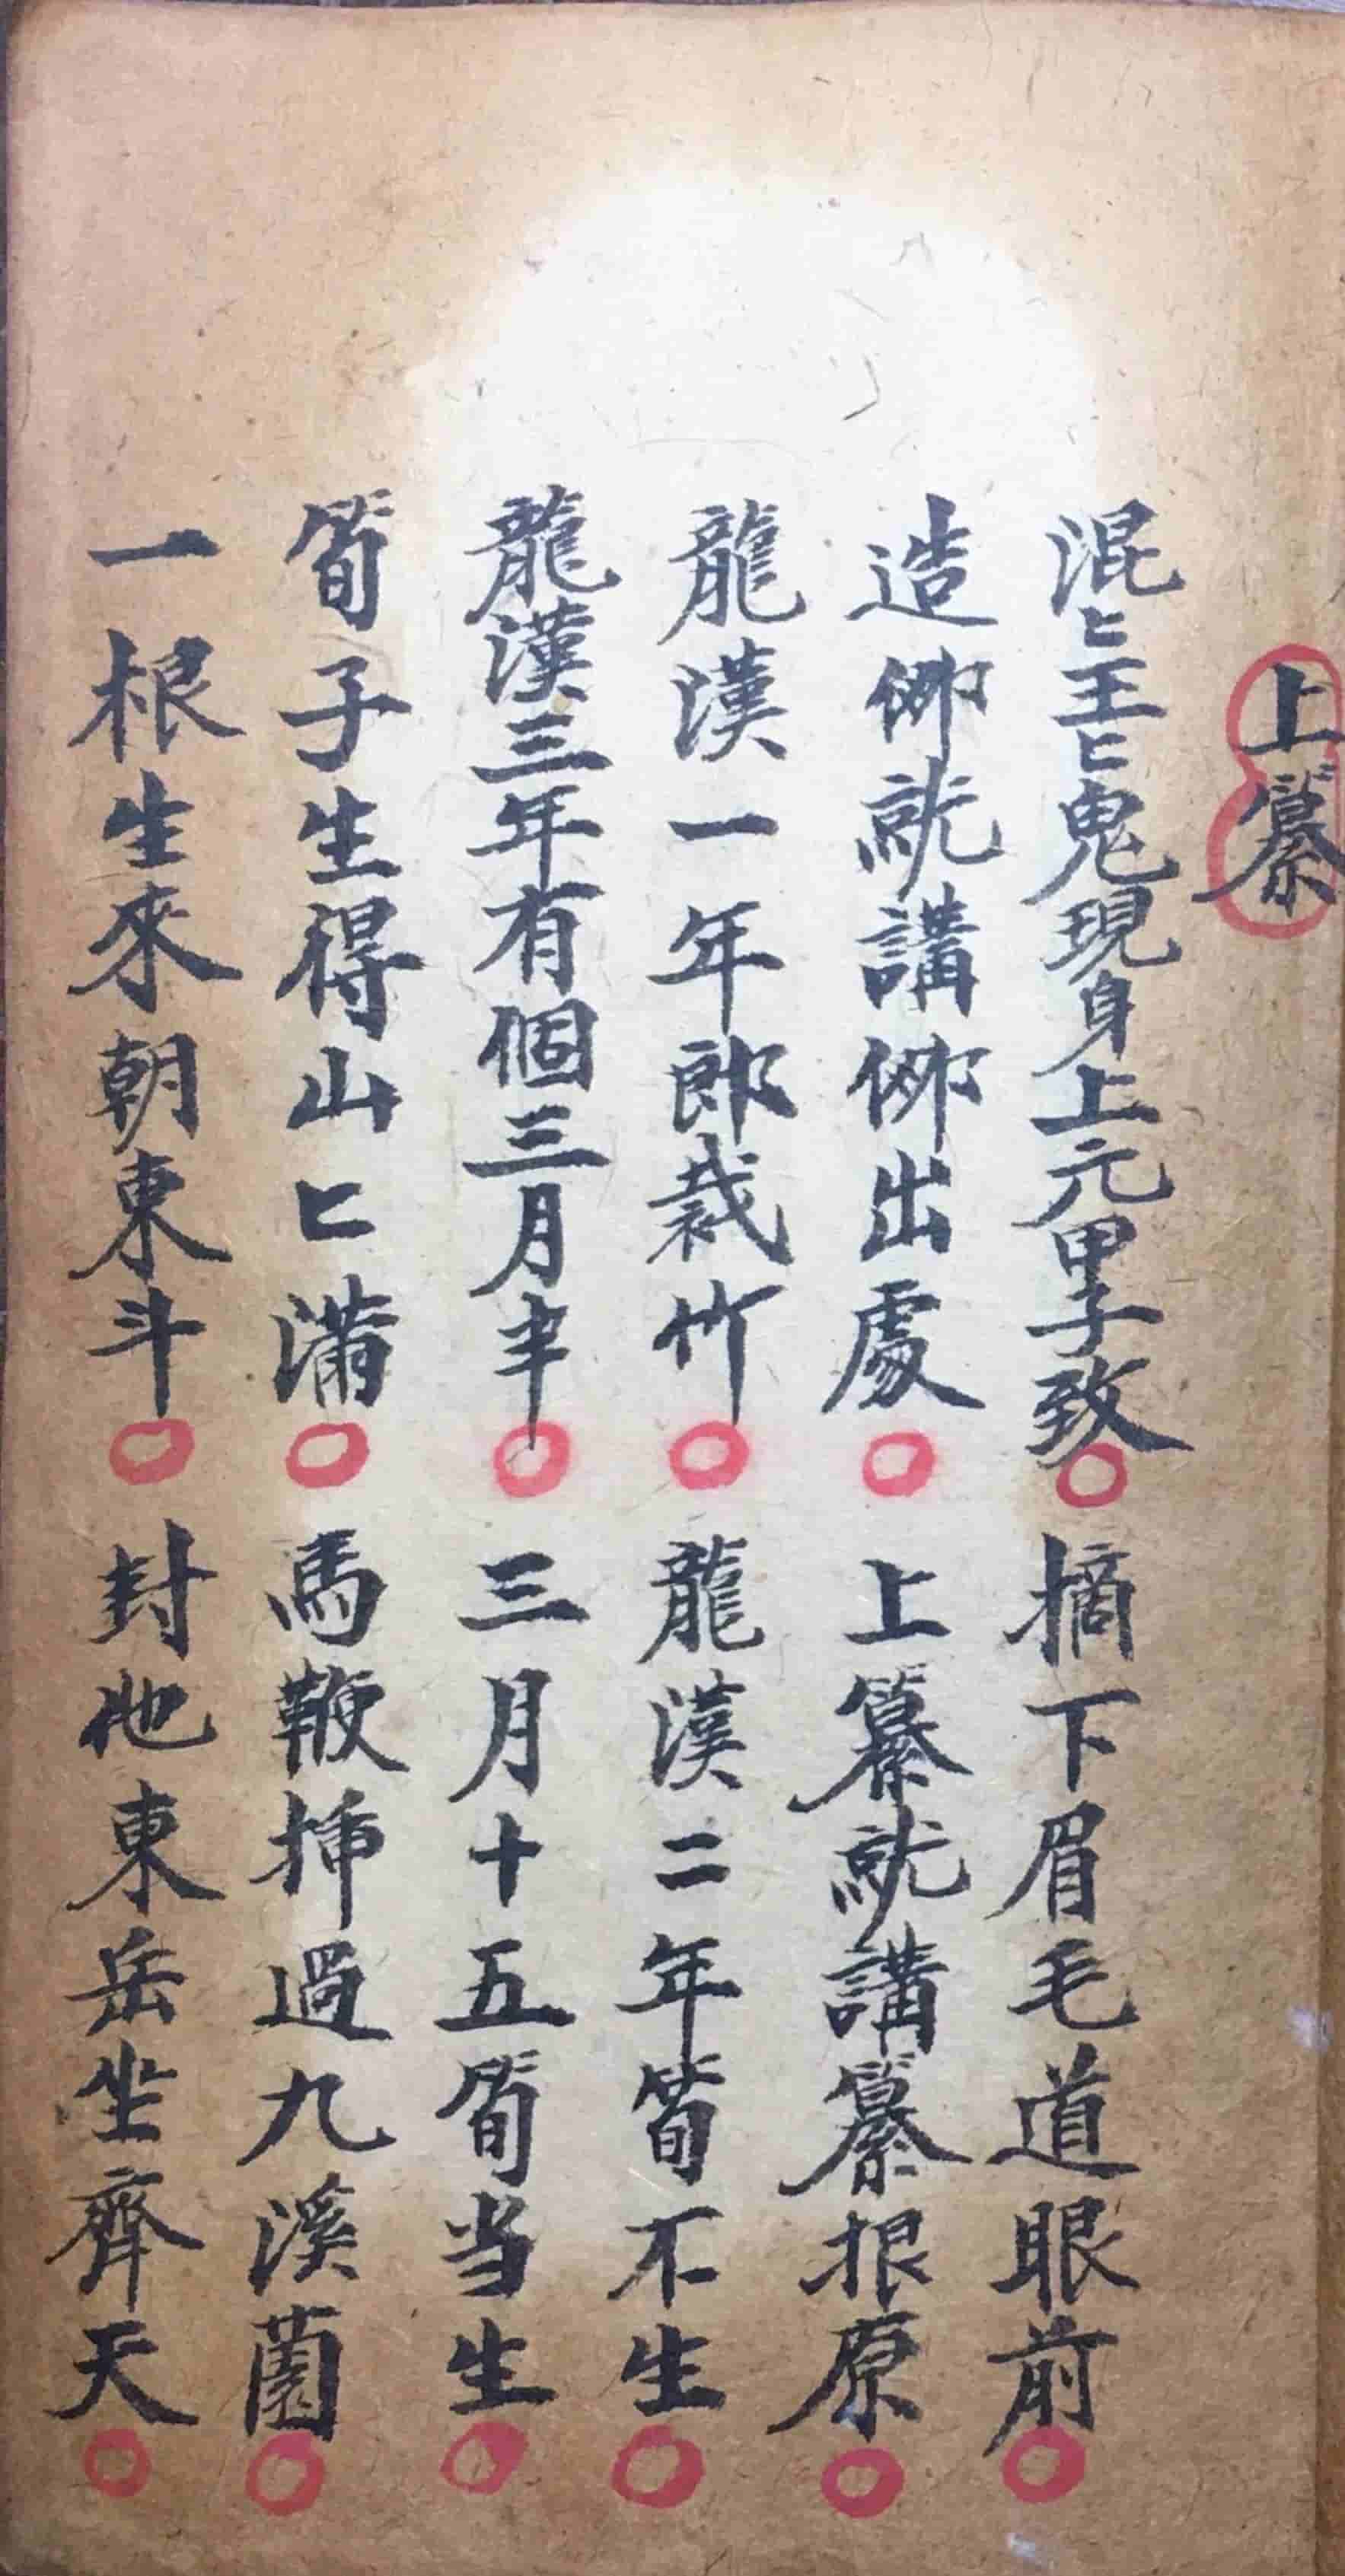 上纂
混匕王匕鬼現身上元甲子致○摘下眉毛道眼前○
造就講出處○上纂就講纂根原○
龍漢一年郎栽竹○龍漢二年筍不生○
龍漢三年有個三月半○三月十五筍当生○
筍子生得山匕滿○馬鞭挿過九溪薗○
一根生來朝東斗○封他東岳坐齊天○